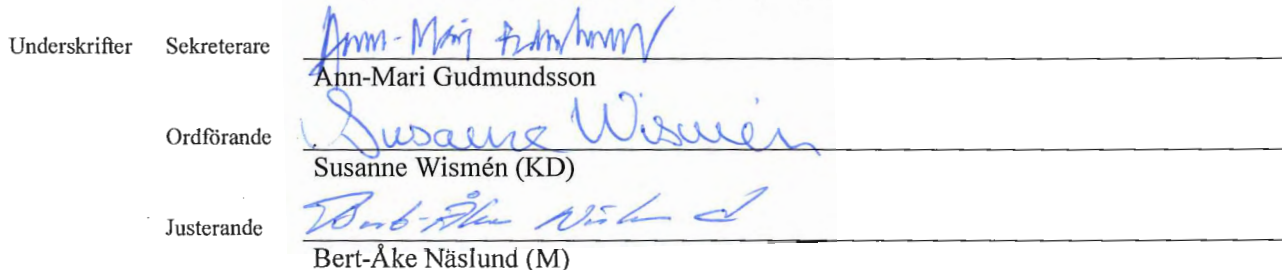 Underskrifter Sekreterare Ann-Mari Gudmundsson
Ann-Mari Gudmundsson
Ordförande Susanne Wismén
Susanne Wismén (KD)
Justerande Bert-Åke Näslund
Bert-Åke Näslund (M)